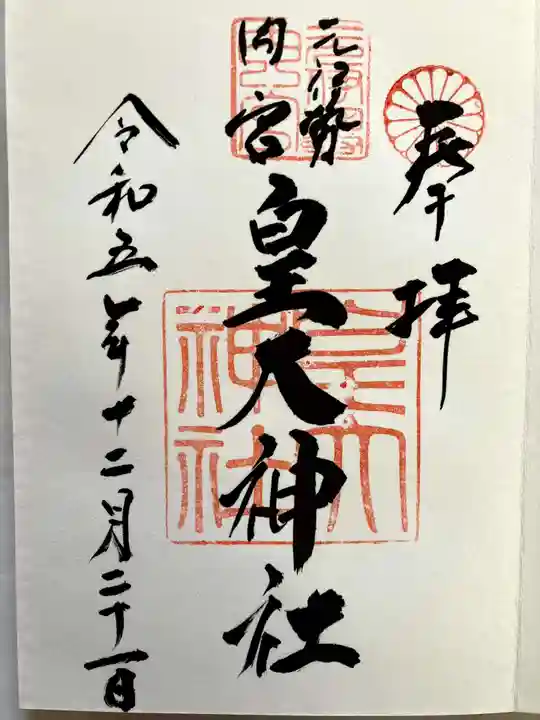 奉拝
元伊勢
内宮
皇大神社
令和五年十二月二十一日
皇大
神社